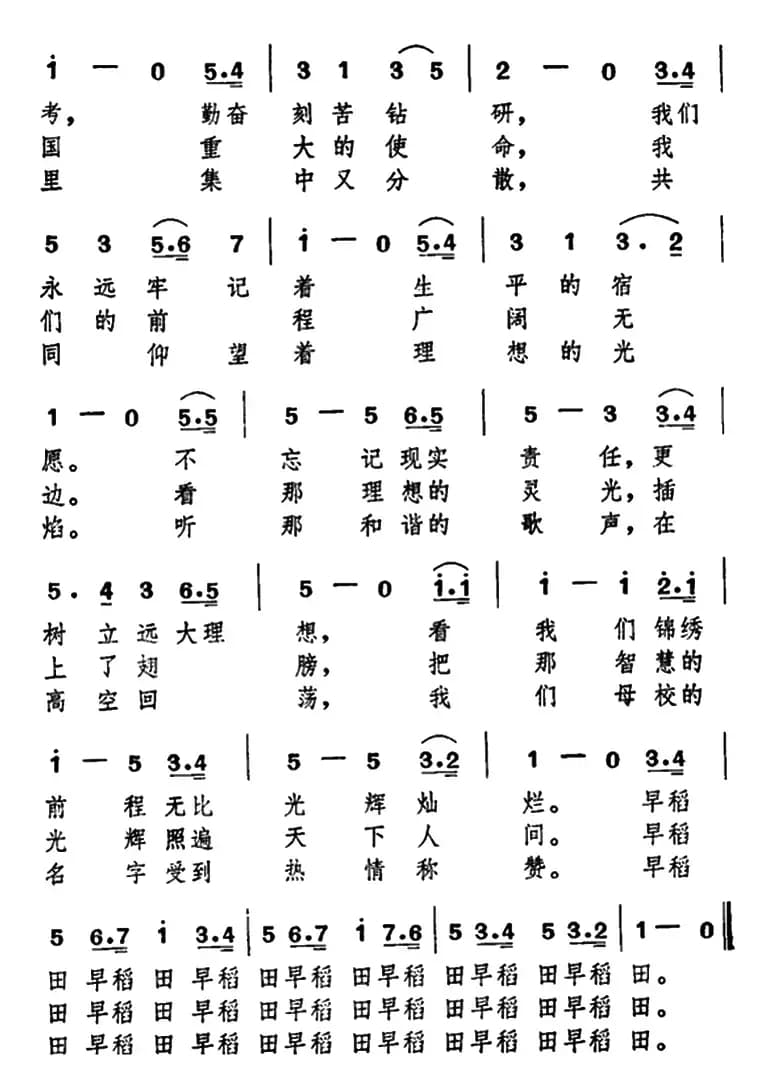 i — 0 5.4 | 3 1 3 5 | 2 — 0 3.4
考， 勤奋 刻 苦 钻 研， 我们
国 重 大 的 使 命， 我
里 集 中 又 分 散， 共
5 3 5.6 7 | i — 0 5.4 | 3 1 3. 2
永 远 牢 记 着 生 平 的 宿
们 的 前 程 广 阔 无
同 仰 望 着 理 想 的 光
1 — 0 5.5 | 5 — 5 6.5 | 5 — 3 3.4
愿。 不 忘 记 现实 责 任， 更
边。 看 那 理 想的 灵 光， 插
焰。 听 那 和 谐的 歌 声， 在
5. 4 3 6.5 | 5 — 0 i.i | i — i 2.i
树 立 远 大理 想， 看 我 们 锦绣
上 了 翅 膀， 把 那 智 慧的
高 空 回 荡， 我 们 母 校的
i — 5 3.4 | 5 — 5 3.2 | 1 — 0 3.4
前 程 无比 光 辉 灿 烂。 早稻
光 辉 照遍 天 下 人 问。 早稻
名 字 受到 热 情 称 赞。 早稻
5 6.7 i 3.4 | 5 6.7 i 7.6 | 5 3.4 5 3.2 | 1 — 0 ‖
田 早稻 田 早稻 田早稻 田早稻 田早稻 田早稻 田。
田 早稻 田 早稻 田早稻 田早稻 田早稻 田早稻 田。
田 早稻 田 早稻 田早稻 田早稻 田早稻 田早稻 田。